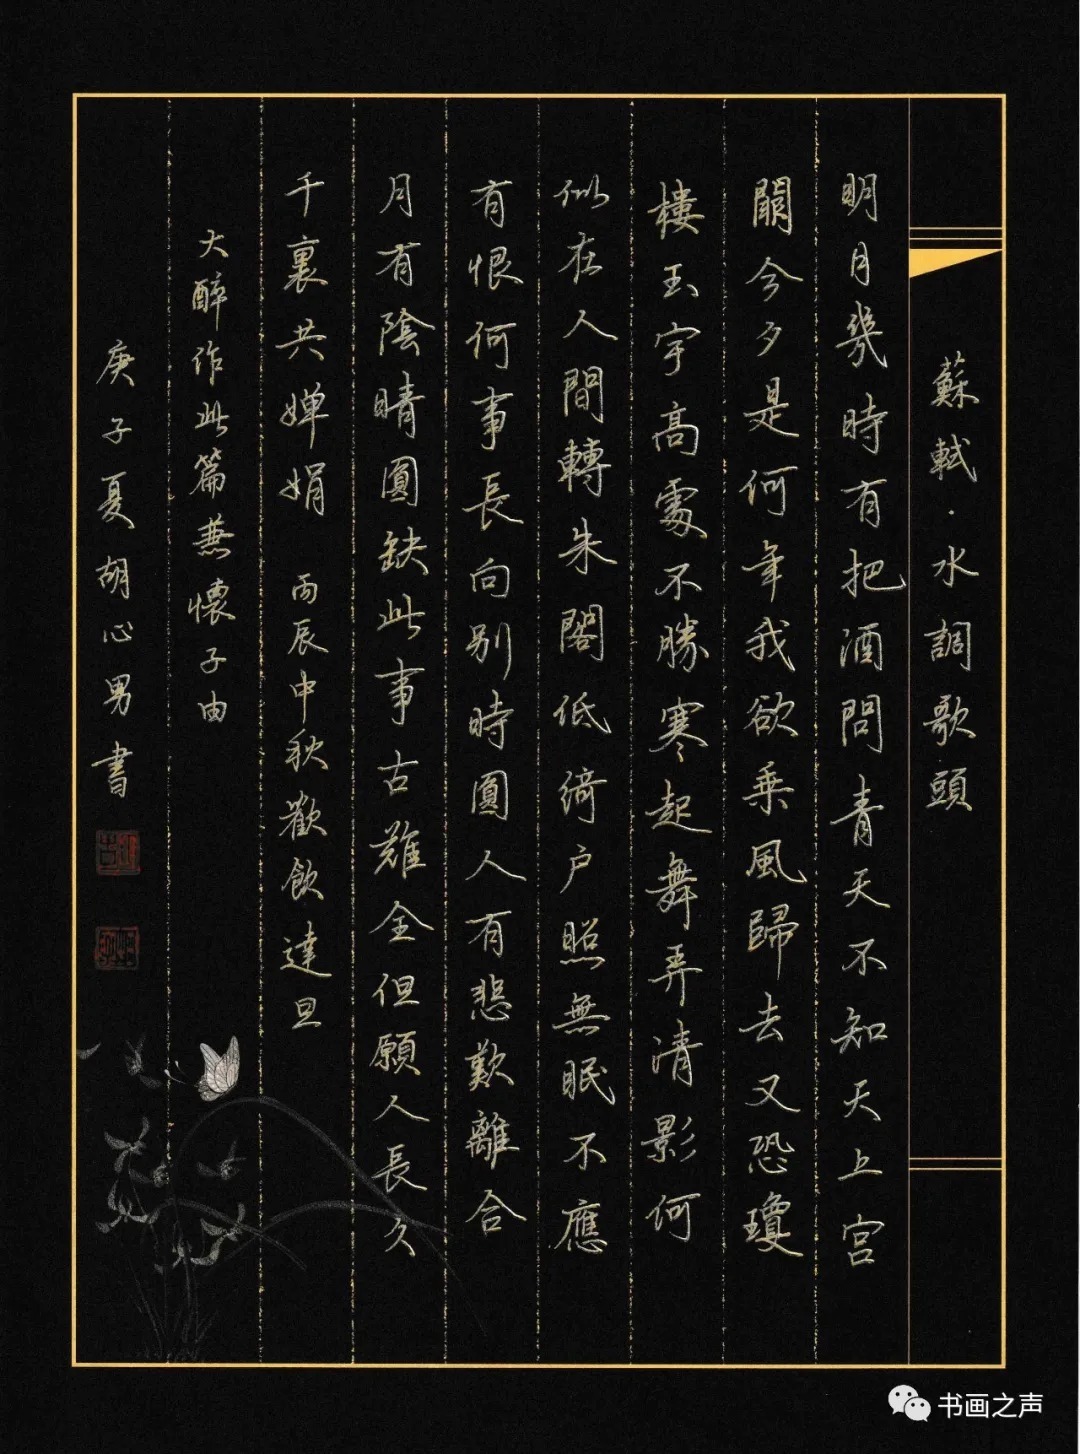 蘇軾·水調歌頭
明月幾時有把酒問青天不知天上宫
闕今夕是何年我欲乘風歸去又恐瓊
樓玉宇高處不勝寒起舞弄清影何
似在人間轉朱閣低綺户照無眠不應
有恨何事長向别時圓人有悲歡離合
月有陰晴圓缺此事古難全但願人長久
千裏共嬋娟 丙辰中秋歡飲達旦
大醉作此篇兼懷子由
庚子夏胡心男書
书画之声